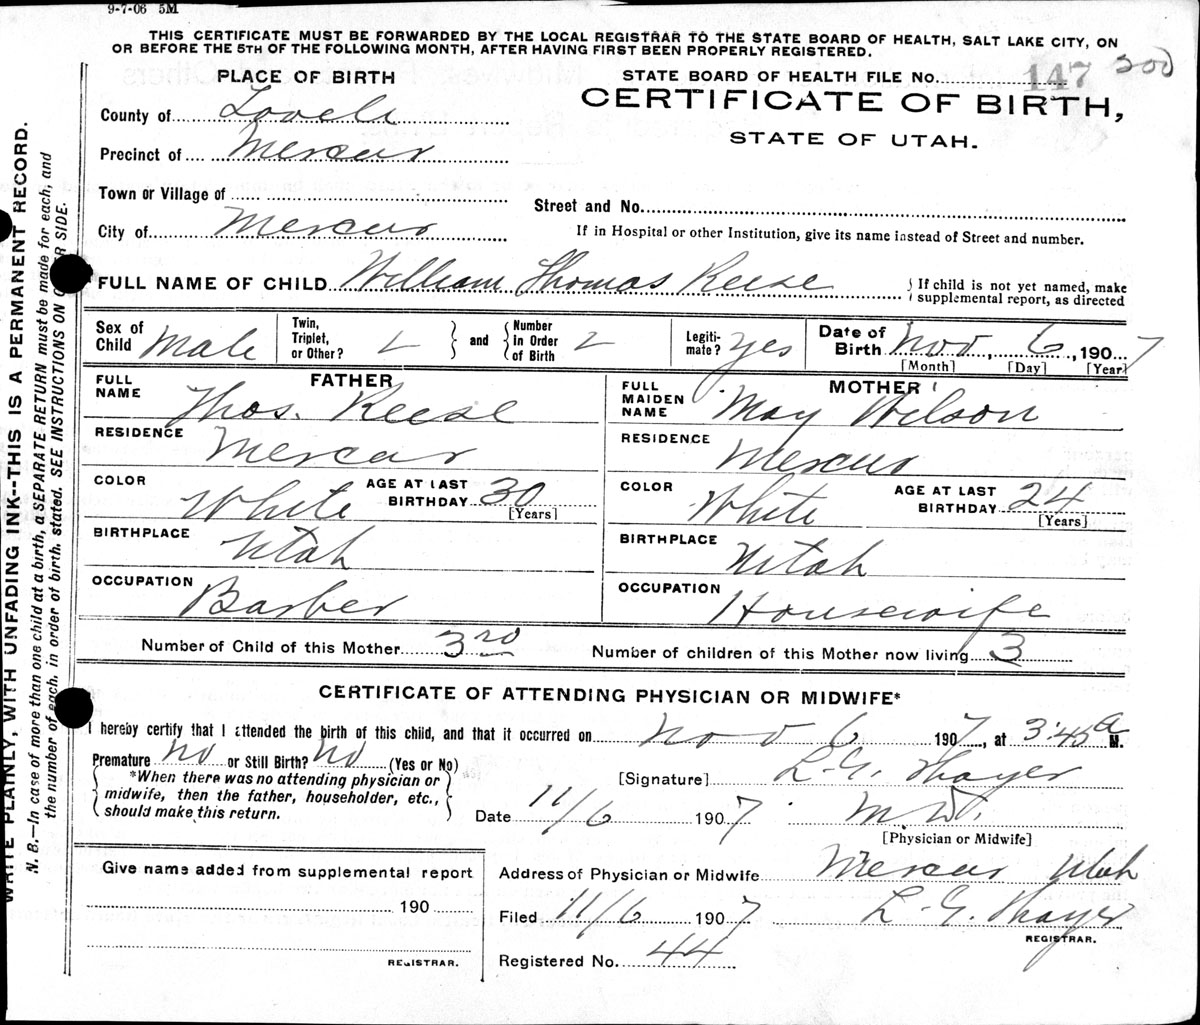 9-7-06 5M
THIS CERTIFICATE MUST BE FORWARDED BY THE LOCAL REGISTRAR TO THE STATE BOARD OF HEALTH, SALT LAKE CITY, ON
OR BEFORE THE 5TH OF THE FOLLOWING MONTH, AFTER HAVING FIRST BEEN PROPERLY REGISTERED.
WRITE PLAINLY, WITH UNFADING INK--THIS IS A PERMANENT RECORD.
N. B.—In case of more than one child at a birth, a SEPARATE RETURN must be made for each, and
the number of each, in order of birth, stated. SEE INSTRUCTIONS ON SIDE.
PLACE OF BIRTH
County of
Precinct of Mercur
Town or Village of
City of Mercur
STATE BOARD OF HEALTH FILE NO. 147 300
CERTIFICATE OF BIRTH,
STATE OF UTAH.
Street and No.
If in Hospital or other Institution, give its name instead of Street and number.
FULL NAME OF CHILD William Thomas Reese
If child is not yet named, make
supplemental report, as directed
Sex of Child Male
Twin, Triplet, or Other?
and
Number in Order of Birth 2
Legiti-mate? Yes
Date of Birth Nov, 6, 1907
[Month] [Day] [Year]
FATHER
FULL NAME Thos. Reese
RESIDENCE Mercur
COLOR White AGE AT LAST BIRTHDAY 30
[Years]
BIRTHPLACE Utah
OCCUPATION Barber
MOTHER
FULL MAIDEN NAME May Wilson
RESIDENCE Mercur
COLOR White AGE AT LAST BIRTHDAY 24
[Years]
BIRTHPLACE Utah
OCCUPATION Housewife
Number of Child of this Mother 3rd Number of children of this Mother now living 3
CERTIFICATE OF ATTENDING PHYSICIAN OR MIDWIFE*
I hereby certify that I attended the birth of this child, and that it occurred on Nov 6 1907, at 3:45 a M.
Premature No or Still Birth? No (Yes or No)
*When there was no attending physician or
midwife, then the father, householder, etc.,
should make this return.
[Signature] L. G. Thayer
Date 11/6 1907 M.D.
[Physician or Midwife]
Give name added from supplemental report
190
REGISTRAR.
Address of Physician or Midwife Mercur Utah
Filed 11/6 1907 L. G. Thayer
REGISTRAR.
Registered No. 44